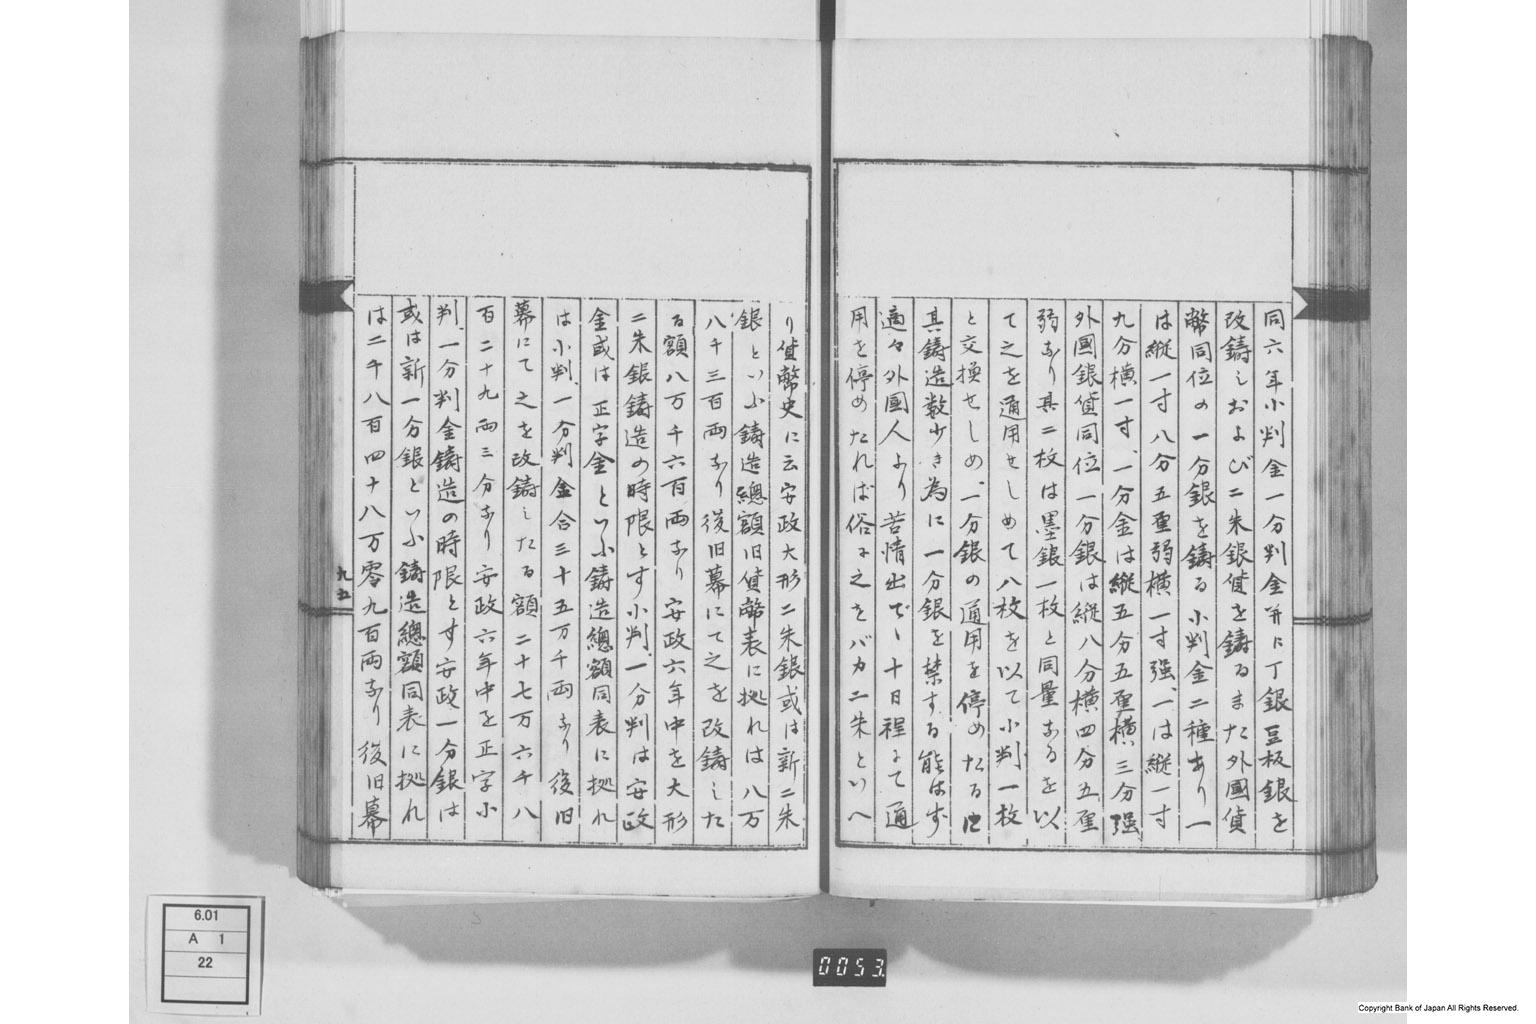 同六年小判金一分判金并ニ丁銀豆板銀を
改鋳しおよび二朱銀貨を鋳るまた外國貨
幣同位の一分銀を鋳る小判金二種あり一
は縦一寸八分五厘弱横一寸強、一は縦一寸
九分横一寸、一分金は縦五分五厘横三分強
外國銀貨同位一分銀は縦八分横四分五厘
弱あり其二枚は墨銀一枚と同量あるを以
て之を通用せしめて八枚を以て小判一枚
と交換せしめ、一分銀の通用を停めたる に
其鋳造数少き為に一分銀を禁する能はず
適々外國人より苦情出で、十日程にて通
用を停めたれば俗に之をバカ二朱といへ
り貨幣史に云安政大形二朱銀或は新二朱
銀といふ鋳造總額旧貨幣表に拠れは八万
八千三百両なり後旧幕にて之を改鋳した
る額八万千六百両なり安政六年中を大形
二朱銀鋳造の時限とす小判、一分判は安政
金或は正字金といふ鋳造總額同表に拠れ
は小判、一分判金合三十五万千両なり後旧
幕にて之を改鋳したる額二十七万六千八
百二十九両三分なり安政六年中を正字小
判、一分判金鋳造の時限とす安政一分銀は
或は新一分銀といふ鋳造總額同表に拠れ
は二千八百四十八万零九百両なり後旧幕
九五
6.01
A 1
22
0053
Copyright Bank of Japan All Rights Reserved.